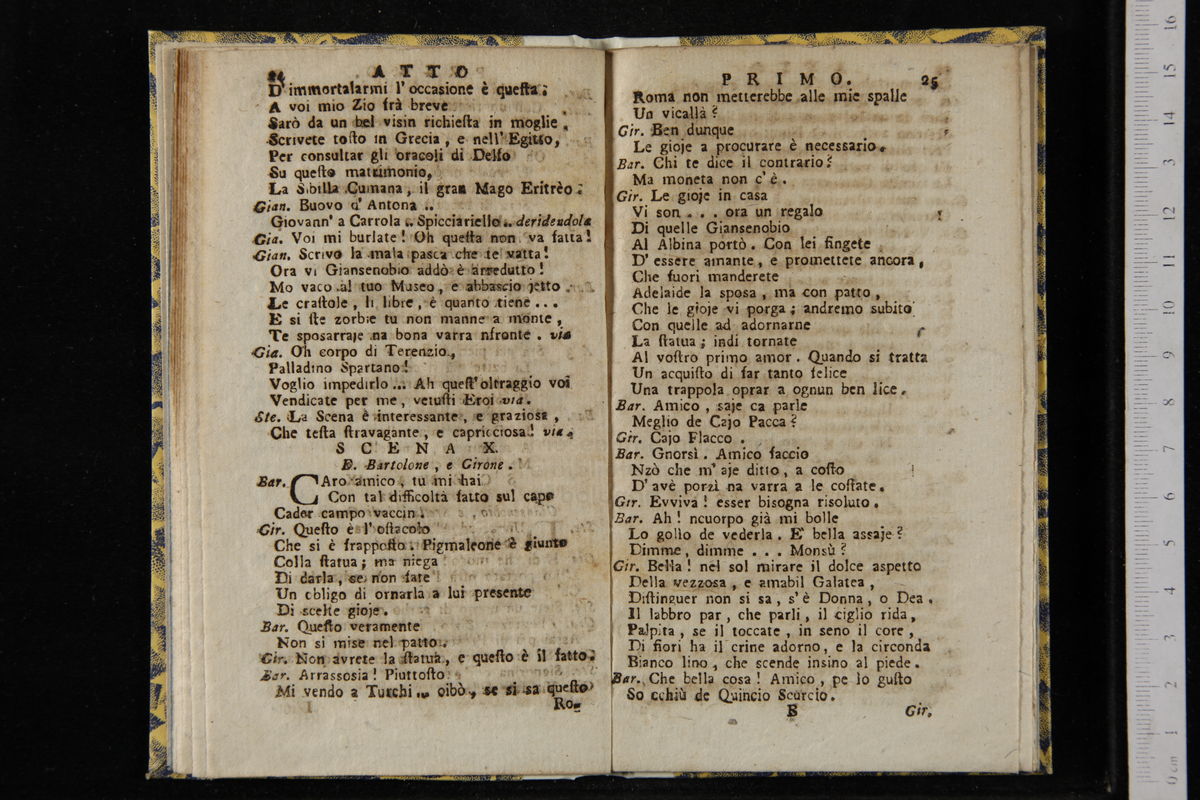 24 ATTO
D' immortalarmi l' occasione è queſta:
A voi mio Zio frà breve
Sarò da un bel viſin richieſta in moglie.
Scrivete toſto in Grecia, e nell' Egitto,
Per conſultar gli oracoli di Delfo
Su queſto matrimonio,
La Sibilla Cumana, il gran Mago Eritrèo.
Gian. Buovo d' Antona ..
Giovann' a Carrola .. Spicciariello .. deridendola
Gia. Voi mi burlate! Oh queſta non va fatta!
Gian. Scrivo la mala paſca che te vatta!
Ora vi Gianſenobio addò è arredutto!
Mo vaco al tuo Muſeo, e abbaſcio jetto
Le craſtole, li libre, è quanto tiene ...
E si ſte zorbie tu non manne a monte,
Te spoſarraje na bona varra nfronte. via
Gia. Oh corpo di Terenzio,
Palladino Spartano!
Voglio impedirlo ... Ah queſt' oltraggio voi
Vendicate per me, vetuſti Eroi via.
Ste. La Scena è intereſſante, e grazioſa,
Che teſta ſtravagante, e capriccioſa! via.
SCENA X.
D. Bartolone, e Girone.
Bar. CAro amico, tu mi hai
Con tal difficoltà fatto sul capo
Cader campo vaccin.
Gir. Queſto è l' oſtacolo
Che si è frappoſto. Pigmaleone è giunto
Colla ſtatua; ma niega
Di darla, se non fate
Un obligo di ornarla a lui presente
Di scelte gioje.
Bar. Queſto veramente
Non si miſe nel patto.
Gir. Non avrete la ſtatua, e queſto è il fatto.
Bar. Arraſſosia! Piuttoſto
Mi vendo a Turchi .. oibò, se si sa queſto
Ro-
PRIMO. 25
Roma non metterebbe alle mie spalle
Un vicallà?
Gir. Ben dunque
Le gioje a procurare è neceſſario.
Bar. Chi te dice il contrario?
Ma moneta non c' è.
Gir. Le gioje in caſa
Vi son ... ora un regalo
Di quelle Gianſenobio
Al Albina portò. Con lei fingete
D' eſſere amante, e promettete ancora,
Che fuori manderete
Adelaide la spoſa, ma con patto,
Che le gioje vi porga; andremo subito
Con quelle ad adornarne
La ſtatua; indi tornate
Al voſtro primo amor. Quando si tratta
Un acquiſto di far tanto felice
Una trappola oprar a ognun ben lice.
Bar. Amico, saje ca parle
Meglio de Cajo Pacca?
Gir. Cajo Flacco.
Bar. Gnorsì. Amico faccio
Nzò che m' aje ditto, a coſto
D' avè porzì na varra a le coſtate.
Gir. Evviva! eſſer biſogna riſoluto.
Bar. Ah! ncuorpo già mi bolle
Lo gollo de vederla. E' bella aſſaje?
Dimme, dimme ... Monsù?
Gir. Bella! nel sol mirare il dolce aspetto
Della vezzoſa, e amabil Galatea,
Diſtinguer non si sa, s' è Donna, o Dea.
Il labbro par, che parli, il ciglio rida,
Palpita, se il toccate, in seno il core,
Di fiori ha il crine adorno, e la circonda
Bianco lino, che scende insino al piede.
Bar. Che bella coſa! Amico, pe lo guſto
So cchiù de Quincio Scurcio.
B Gir.
0 cm 1 2 3 4 5 6 7 8 9 10 11 12 13 14 15 16